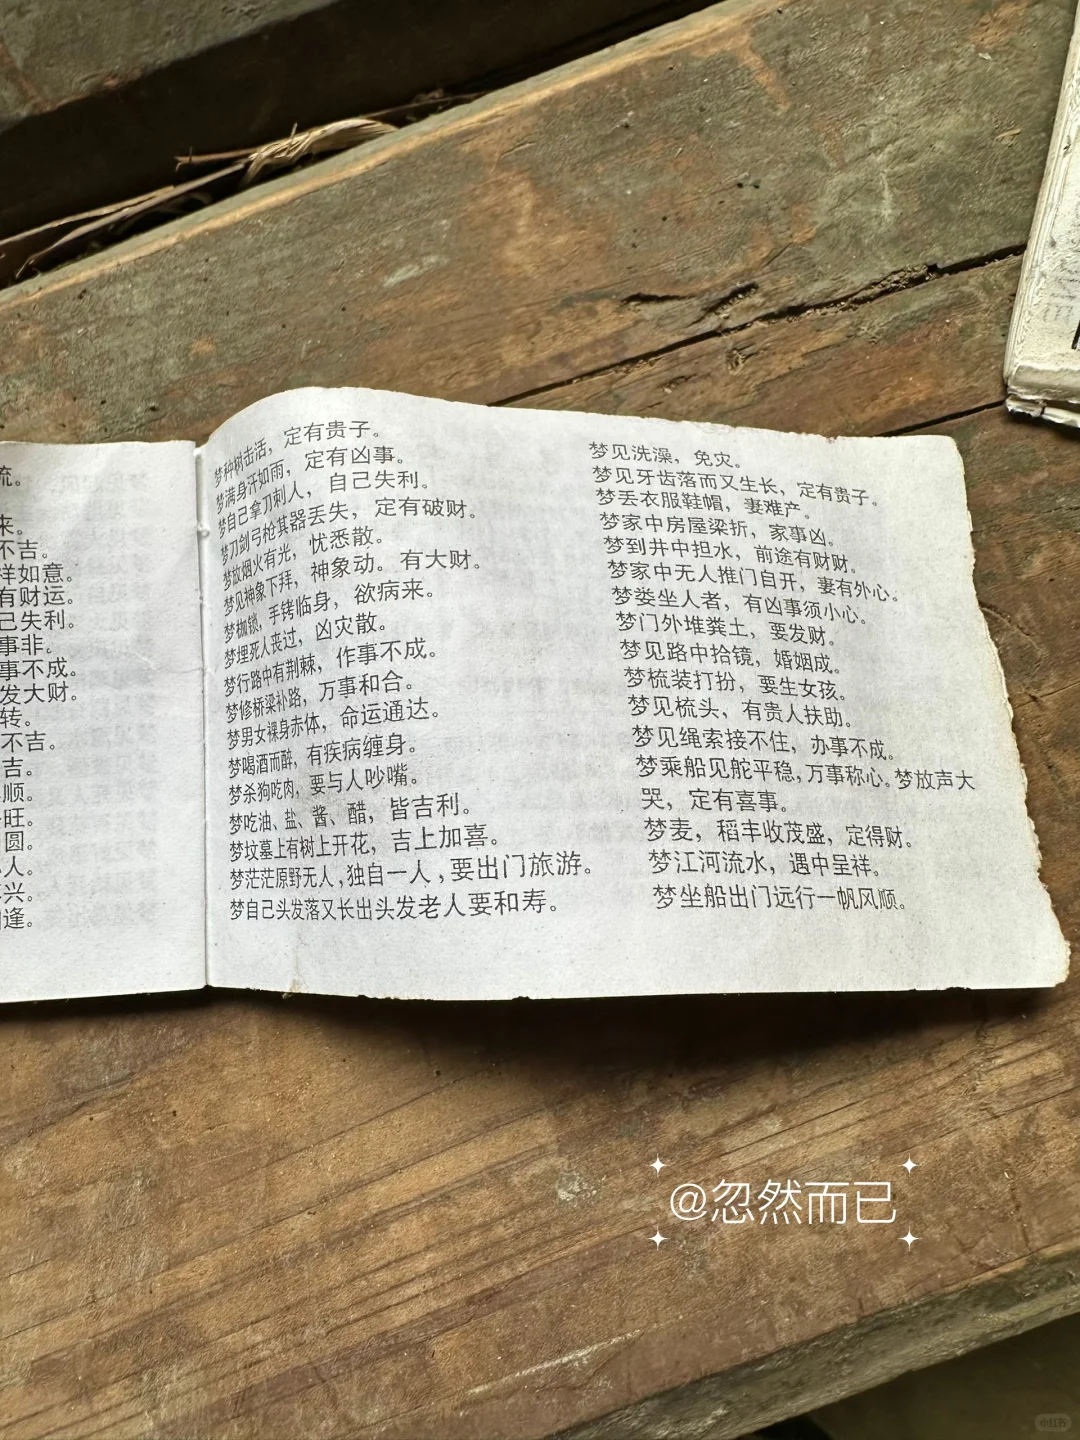 流。
来。
不吉。
祥如意。
有财运。
己失利。
事非。
事不成。
发大财。
转。
不吉。
吉。
顺。
旺。
圆。
人。
兴。
逢。
梦种树击活，定有贵子。
梦满身汗如雨，定有凶事。
梦自己拿刀刺人，自己失利。
梦刀剑弓枪其器丢失，定有破财。
梦放烟火有光，忧悉散。
梦见神象下拜，神象动。有大财。
梦枷锁，手铐临身，欲病来。
梦埋死人丧过，凶灾散。
梦行路中有荆棘，作事不成。
梦修桥梁补路，万事和合。
梦男女裸身赤体，命运通达。
梦喝酒而醉，有疾病缠身。
梦杀狗吃肉，要与人吵嘴。
梦吃油、盐、酱、醋，皆吉利。
梦坟墓上有树上开花，吉上加喜。
梦茫茫原野无人，独自一人，要出门旅游。
梦自己头发落又长出头发老人要和寿。
梦见洗澡，免灾。
梦见牙齿落而又生长，定有贵子。
梦丢衣服鞋帽，妻难产。
梦家中房屋梁折，家事凶。
梦到井中担水，前途有财财。
梦家中无人推门自开，妻有外心。
梦娄坐人者，有凶事须小心。
梦门外堆粪土，要发财。
梦见路中拾镜，婚姻成。
梦梳装打扮，要生女孩。
梦见梳头，有贵人扶助。
梦见绳索接不住，办事不成。
梦乘船见舵平稳，万事称心。梦放声大
哭，定有喜事。
梦麦，稻丰收茂盛，定得财。
梦江河流水，遇中呈祥。
梦坐船出门远行一帆风顺。
@忽然而已
小红书